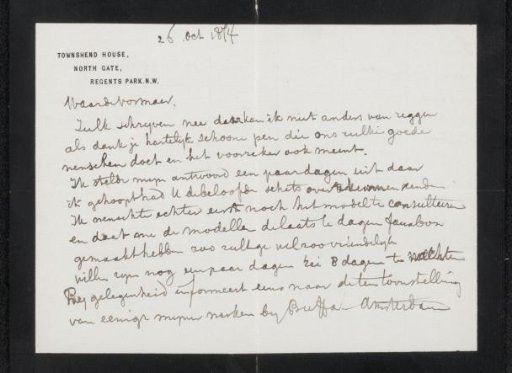 26 Oct 1874
TOWNSHEND HOUSE,
NORTH GATE,
REGENTS PARK. N.W.
Waarde Vosmaer,
Zulk schrijven nee daar kan ik niet anders van zeggen
als dank je hartelijk schoone pen die ons zulke goede
menschen doet en het voorzeker ook meent.
Ik stelde mijn antwoord een paar dagen uit daar
ik gehoopt had U de beloofde schets over te kunnen zenden
Ik wenschte echter eerst noch het model te consulteeren
en daar me de modellen de laatste dagen
gemaakt hebben zoo zult ge wel zoo vriendelijk
willen zijn nog een paar dagen bij 8 dagen te wachten
Bij gelegenheid informeert eens naar de tentoonstelling
van eenige mijner werken by Buffa Amsterdam